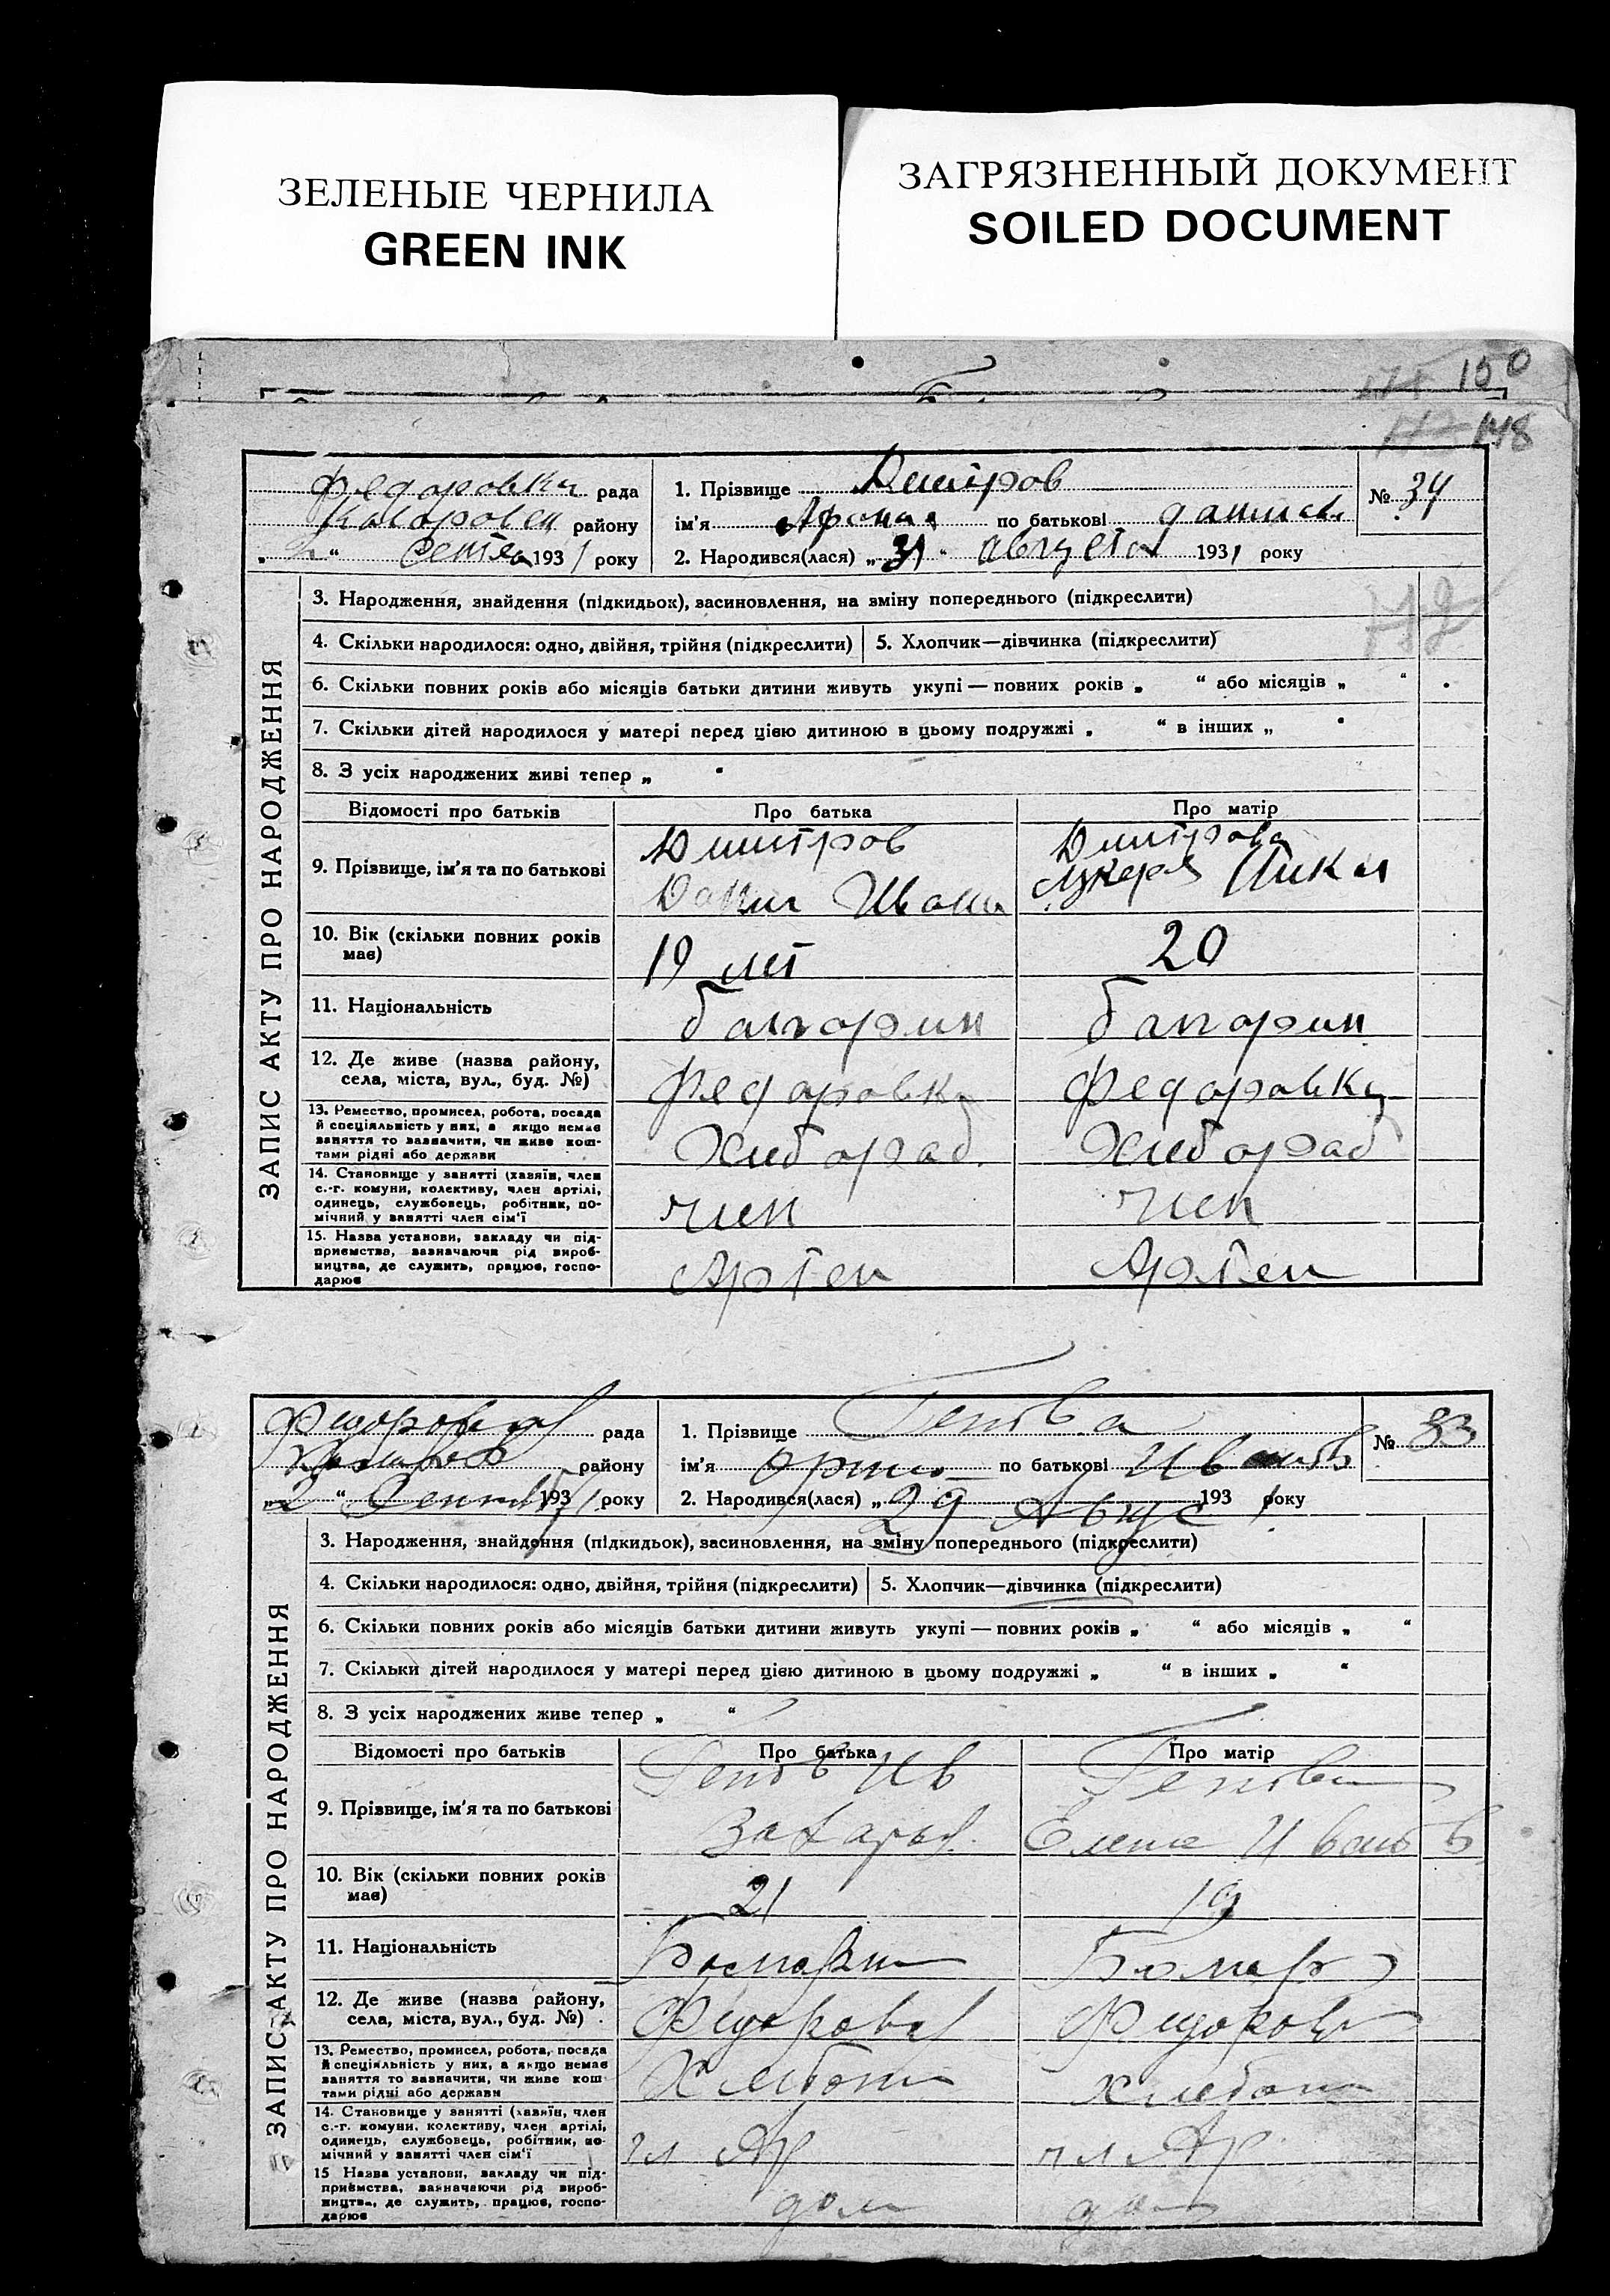 ЗЕЛЕНЫЕ ЧЕРНИЛА
GREEN INK
ЗАГРЯЗНЕННЫЙ ДОКУМЕНТ
SOILED DOCUMENT
150
148
Федоровка рада
району
" сентя 1931 року
1. Прізвище Дмитров
ім'я по батькові
2. Народився(лася) „31“ августа 1931 року
№ 34
ЗАПИС АКТУ ПРО НАРОДЖЕННЯ
3. Народження, знайдення (підкидьок), засиновлення, на зміну попереднього (підкреслити)
4. Скільки народилося: одно, двійня, трійня (підкреслити) 5. Хлопчик—дівчинка (підкреслити)
6. Скільки повних років або місяців батьки дитини живуть укупі — повних років „ “ або місяців „ “
7. Скільки дітей народилося у матері перед цією дитиною в цьому подружжі „ “ в інших „ “
8. З усіх народжених живі тепер „ “
Відомості про батьків Про батька Про матір
9. Прізвище, ім'я та по батькові
Дмитров
Иван
Дмитрова
10. Вік (скільки повних років має)
19 лет 20
11. Національність
болгорин болгорин
12. Де живе (назва району, села, міста, вул., буд. №)
Федоровка Федоровка
13. Ремество, промисел, робота, посада
й спеціяльність у них, а якщо немає
заняття то зазначити, чи живе кош-
тами рідні або держави
Хлебороб Хлебороб
14. Становище у занятті (хазяїн, член
с.-г. комуни, колективу, член артілі,
одинець, службовець, робітник, по-
мічний у занятті член сім'ї
член член
15. Назва установи, закладу чи під-
приємства, зазначаючи рід вироб-
ництва, де служить, працює, госпо-
дарює
Артел Артел
рада
району
„2“ Сентяб 1931 року
1. Прізвище Генова
ім'я по батькові Иванов
2. Народився(лася) „29 Авгус 1931 року
№ 33
ЗАПИС АКТУ ПРО НАРОДЖЕННЯ
3. Народження, знайдення (підкидьок), засиновлення, на зміну попереднього (підкреслити)
4. Скільки народилося: одно, двійня, трійня (підкреслити) 5. Хлопчик—дівчинка (підкреслити)
6. Скільки повних років або місяців батьки дитини живуть укупі — повних років „ “ або місяців „ “
7. Скільки дітей народилося у матері перед цією дитиною в цьому подружжі „ “ в інших „ “
8. З усіх народжених живе тепер „ “
Відомості про батьків Про батька Про матір
9. Прізвище, ім'я та по батькові
Генов Ив
Захарьев
Генова
Елена Иванов
10. Вік (скільки повних років має)
21 19
11. Національність
12. Де живе (назва району, села, міста, вул., буд. №)
13. Ремество, промисел, робота, посада
й спеціяльність у них, а якщо немає
заняття то зазначити, чи живе кош-
тами рідні або держави
14. Становище у занятті (хазяїн, член
с.-г. комуни, колективу, член артілі,
одинець, службовець, робітник, по-
мічний у занятті член сім'ї
чл Ар чл Ар
15 Назва установи, закладу чи під-
приємства, зазначаючи рід вироб-
ництва, де служить, працює, госпо-
дарює
дом дом